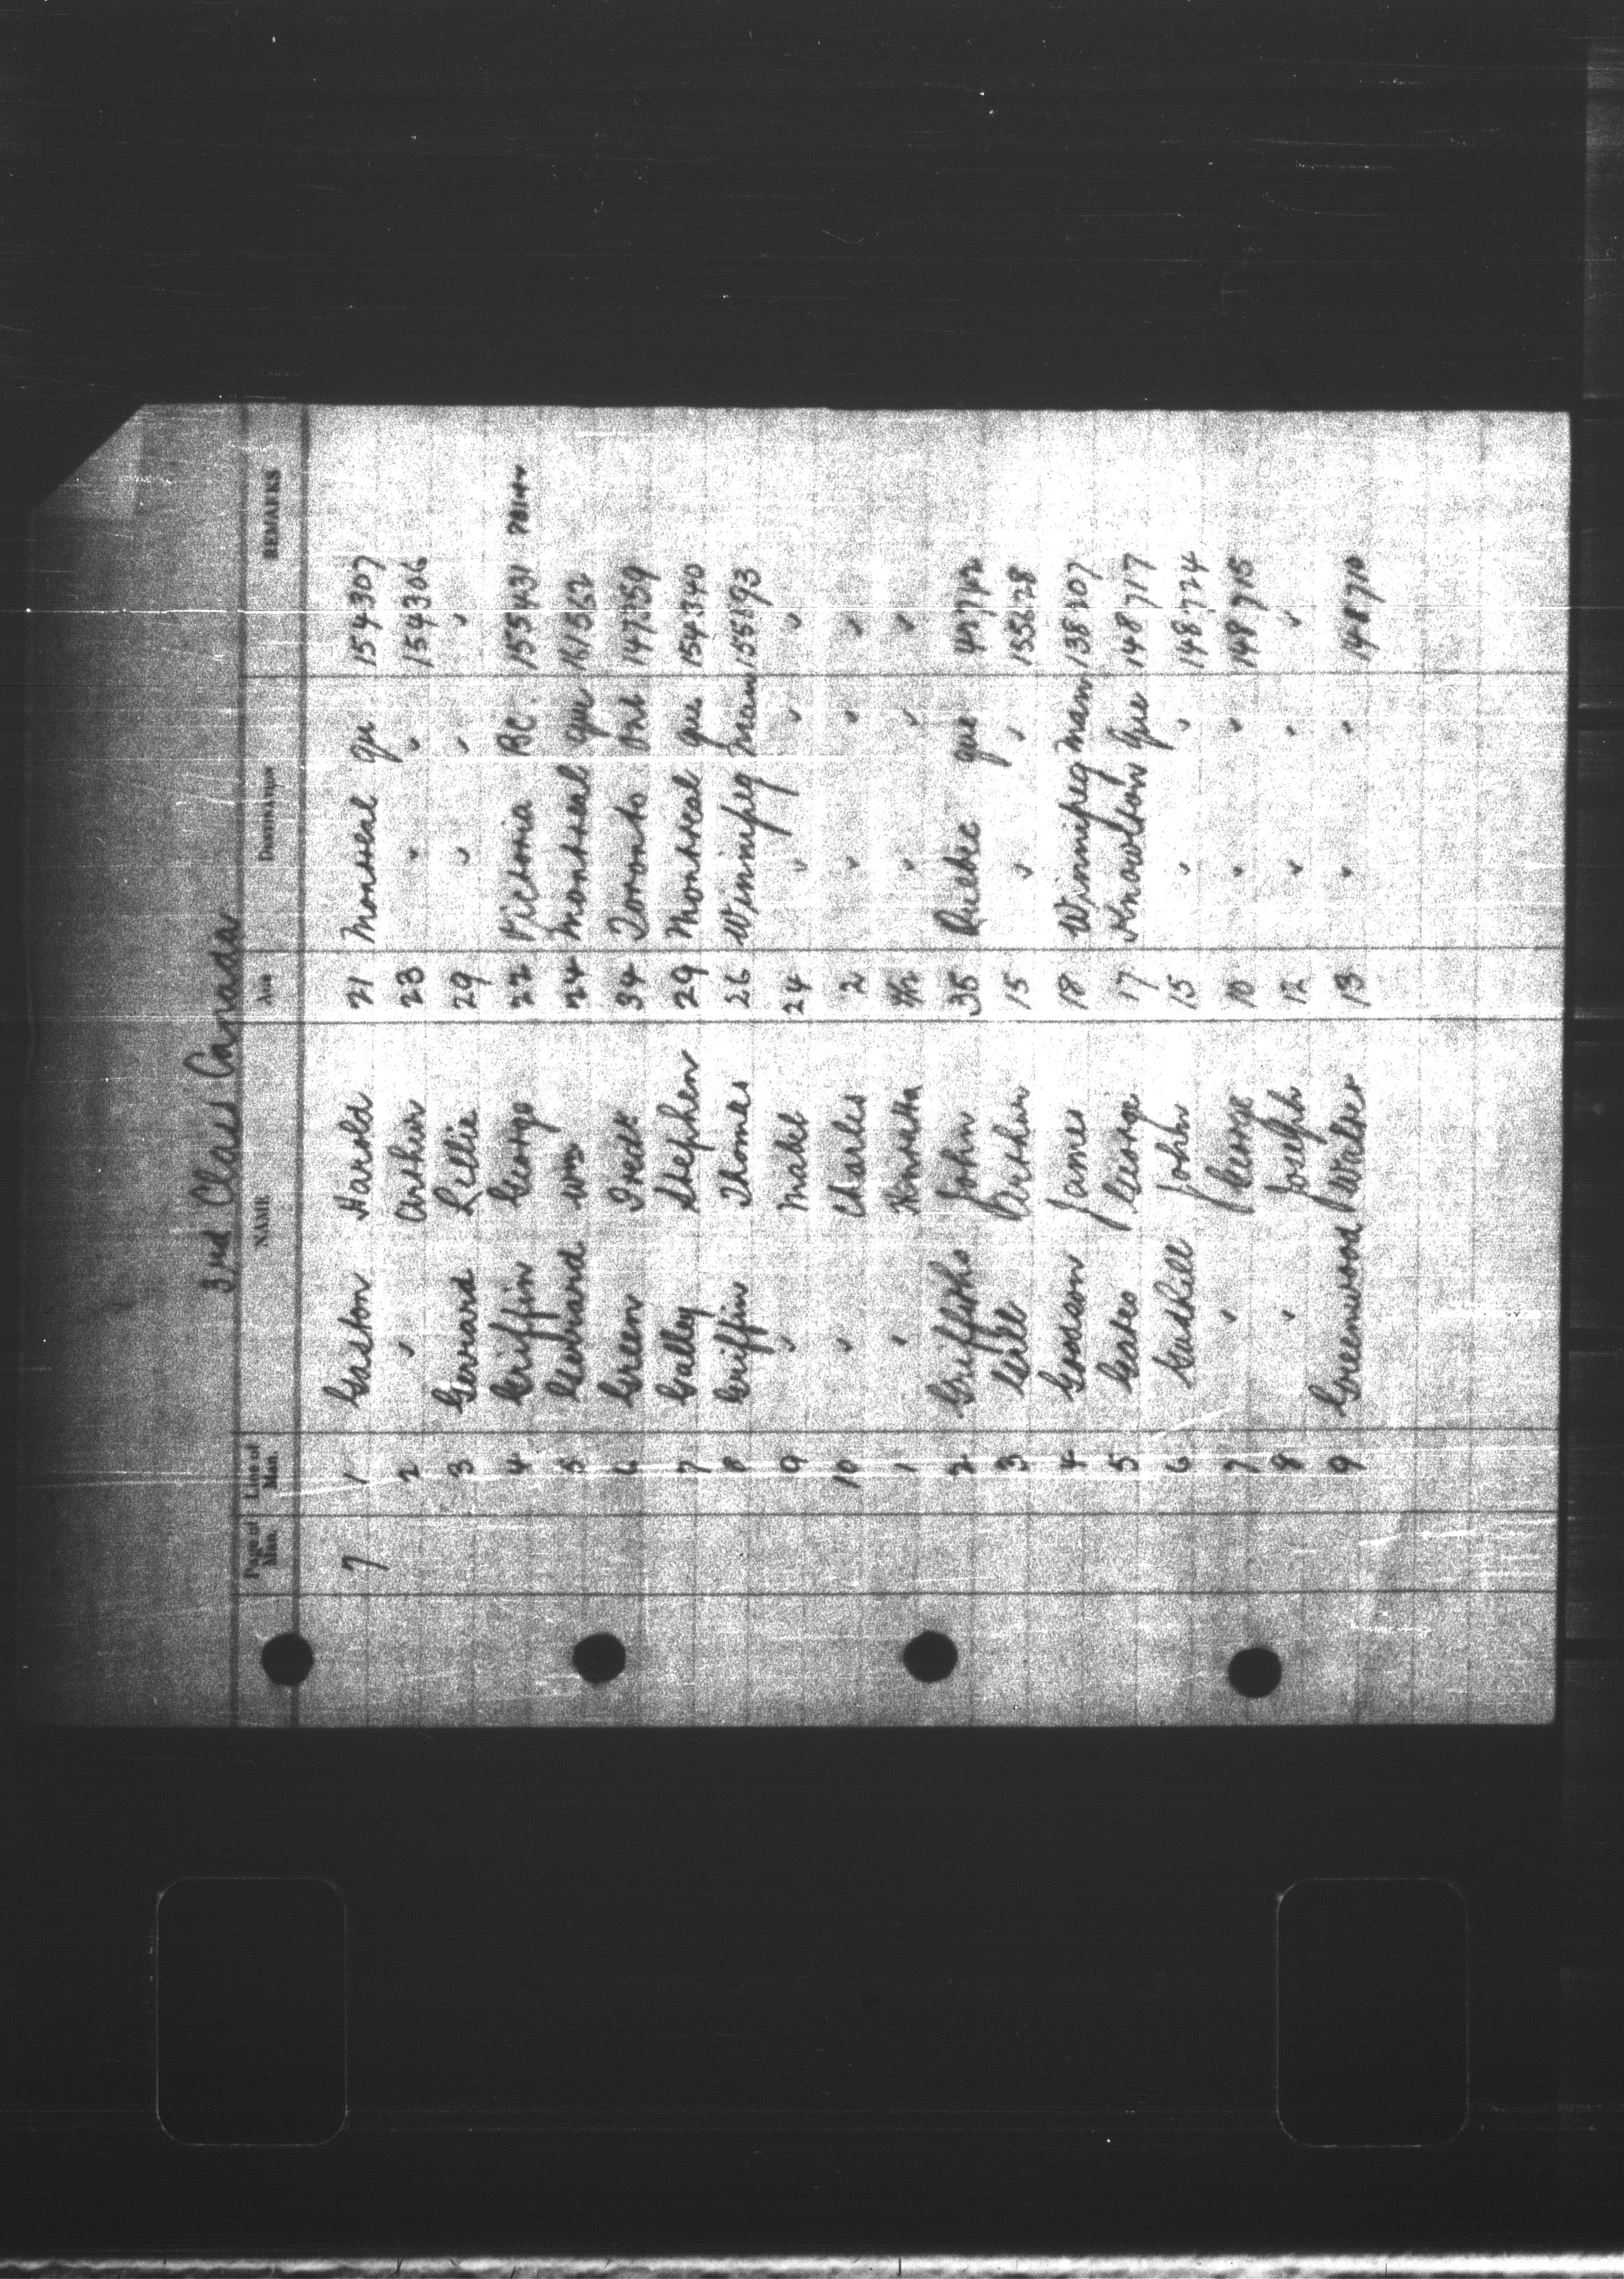 3rd Class Canada
Page of Man. Line of Man. NAME Age Destination REMARKS
7 1 Gaston Harold 21 Montreal Que 154307
2 " Arthur 23 " " 154306
3 Gerrard Lillie 29 " " "
4 Griffin George 22 Victoria BC. 155431
5 Wm 24 Montreal Que
6 Green Fredk 34 Toronto Ont 147359
7 Galley Stephen 29 Montreal Que 154340
8 Griffin Thomas 26 Winnipeg Man
9 " Mabel 24 " " "
10 " Charles 2 " " "
1 " " " "
2 Griffiths John 35 Quebec Que
3 Arthur 15 " "
4 James 18 Winnipeg Man
5 George 17 Knowlton Que 148717
6 John 15 " " 148724
7 " George 10 " " 148715
8 " Joseph 12 " " "
9 Greenwood Walter 13 " " 148710